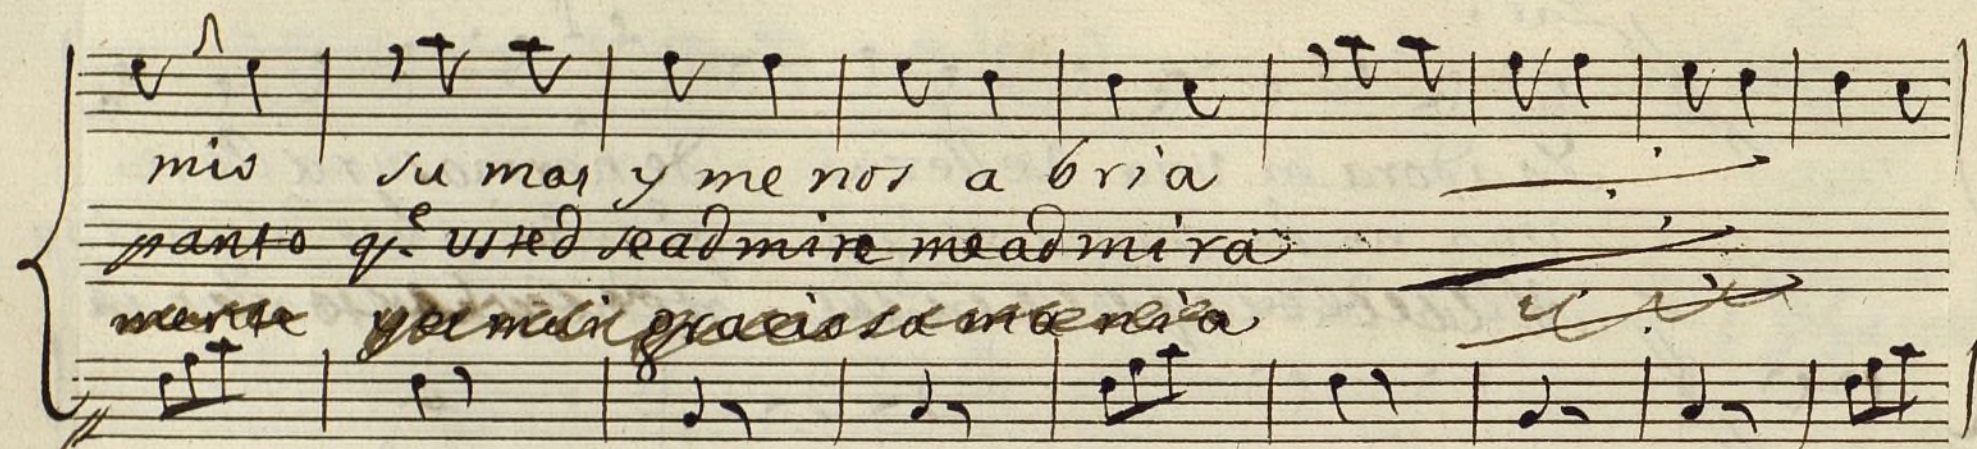 mis su mas y me nos a bria
panto q.e usted se admire me admira
mente y es mui graciosa mania